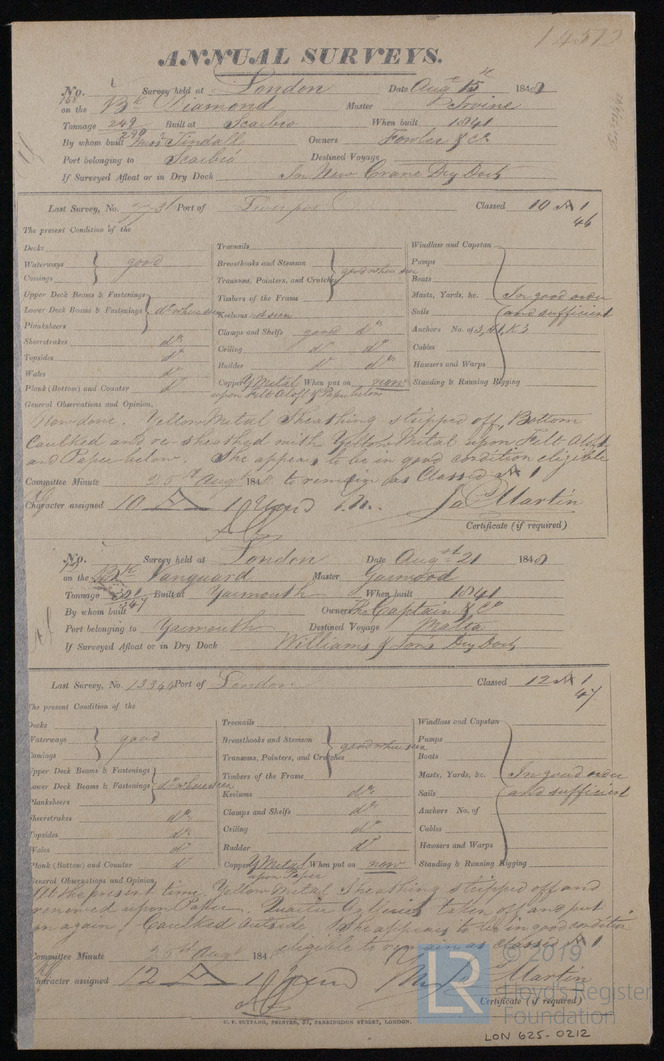 ANNUAL SURVEYS.
No. Survey held at London Date Augt 15th 1848
on the Bk Diamond Master Irvine
Tonnage 249 Built at Scarbro When built 1841
290
By whom built Messrs Tindall Owners Fowler & Co
Port belonging to Scarbro Destined Voyage
If Surveyed Afloat or in Dry Dock In New Crane Dry Dock
Last Survey, No. Port of Liverpool Classed 10 A 1
46
The present Condition of the
Decks
Waterways good
Comings
Upper Deck Beams & Fastenings
Lower Deck Beams & Fastenings do where seen
Planksheers
Sheerstrakes do
Topsides do
Wales do
Plank (Bottom) and Counter do
Treenails
Breasthooks and Stemson
Transoms, Pointers, and Crutches good where seen
Timbers of the Frame
Keelsons not seen
Clamps and Shelfs good do
Ceiling do do
Rudder do do
Copper Y Metal When put on now
upon Felt aloft & Paper below
Windlass and Capstan
Pumps
Boats
Masts, Yards, &c. In good order
Sails and sufficient
Anchors No. of
Cables
Hawsers and Warps
Standing & Running Rigging
General Observations and Opinion,
Now done. Yellow Metal Sheathing stripped off, Bottom
Caulked and re-sheathed with Yellow Metal upon Felt aloft
and Paper below. She appears to be in good condition eligible
Committee Minute 25th Augt 1848 to remain as Classed A 1
Character assigned 10 A 1 Jas Martin
Certificate (if required)
No. Survey held at London Date Augst 21 1848
on the Bk Vanguard Master Garwood
Tonnage 301 Built at Yarmouth When built 1841
347
By whom built Owners The Captain & Co
Port belonging to Yarmouth Destined Voyage Malta
If Surveyed Afloat or in Dry Dock Williams & Sons Dry Dock
Last Survey, No. 13344 Port of London Classed 12 A 1
47
The present Condition of the
Decks
Waterways good
Comings
Upper Deck Beams & Fastenings
Lower Deck Beams & Fastenings do where seen
Planksheers
Sheerstrakes do
Topsides do
Wales do
Plank (Bottom) and Counter do
Treenails
Breasthooks and Stemson
Transoms, Pointers, and Crutches good where seen
Timbers of the Frame
Keelsons do
Clamps and Shelfs do
Ceiling do
Rudder do
Copper Y Metal When put on now
upon Paper
Windlass and Capstan
Pumps
Boats
Masts, Yards, &c. In good order
Sails and sufficient
Anchors No. of
Cables
Hawsers and Warps
Standing & Running Rigging
General Observations and Opinion,
At the present time, Yellow Metal Sheathing stripped off and
renewed upon Paper. Quarter Galleries taken off, and put
on again, Caulked outside. She appears to be in good condition
eligible to remain as classed A 1
Committee Minute 25th Augt 184
Character assigned 12 A 1 Martin
Certificate (if required)
LR © 2019
Lloyd's Register
Foundation
LON 625-0212